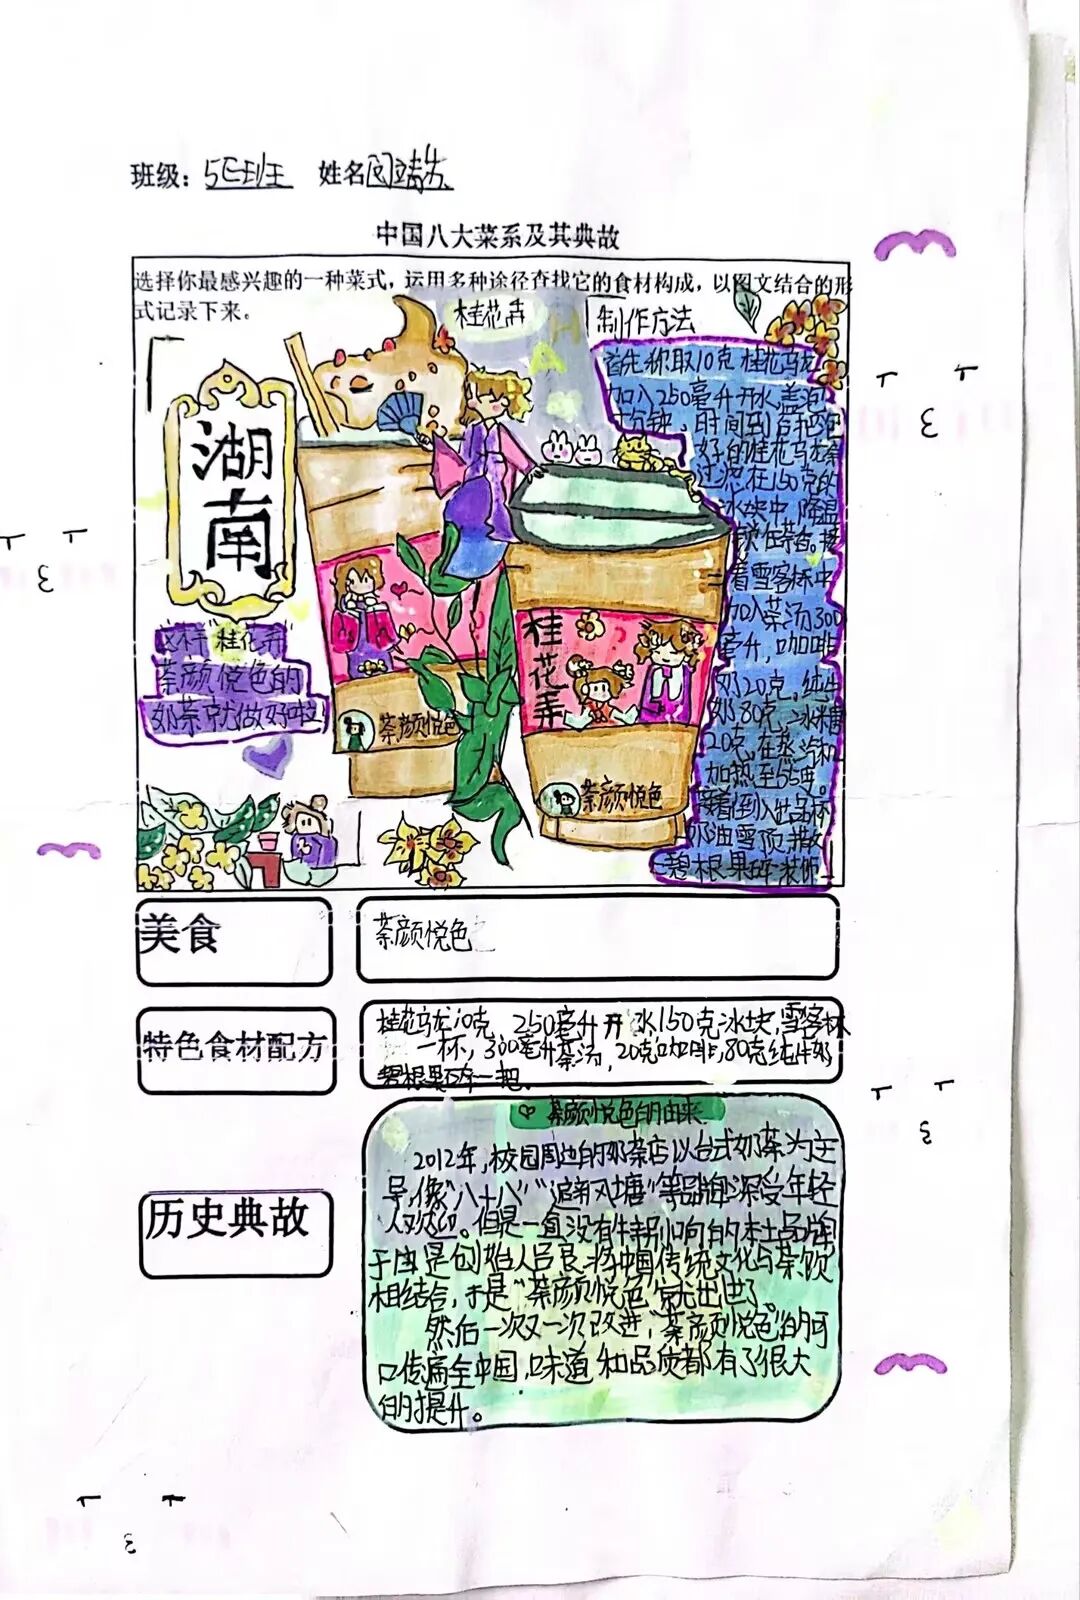 班级：5E班 姓名
中国八大菜系及其典故
选择你最感兴趣的一种菜式，运用多种途径查找它的食材构成，以图文结合的形
式记录下来。
桂花弄
湖南
桂花弄
茶颜悦色的
奶茶就做好啦
茶颜悦色
桂花弄
茶颜悦色
制作方法
首先称取10克桂花乌龙
加入250毫升开水盖泡
分钟，时间到后把泡
好的桂花乌龙茶
过滤在150克的
冰块中降温
锁住茶香。接
着雪客杯中
加入茶汤300
毫升，咖啡
奶20克，纯牛
奶80克，冰糖
20克，在蒸汽机
加热至55度。
接着倒入出品杯
奶油雪顶撒
碧根果碎装饰
美食
茶颜悦色
特色食材配方
桂花乌龙10克，250毫升开水150克冰块，雪客杯
一杯，300毫升茶汤，20克咖啡，80克纯牛奶
碧根果碎一把。
茶颜悦色的由来
历史典故
2012年，校园周边的奶茶店以台式奶茶为主
导，像“八十八”“避风塘”等品牌深受年轻
人欢迎。但是一直没有特别响的本土品牌
于是创始人吕良将中国传统文化与茶饮
相结合，于是“茶颜悦色”就出世了。
然后一次又一次改进，“茶颜悦色”的可
口传遍全中国，味道和品质都有了很大
的提升。